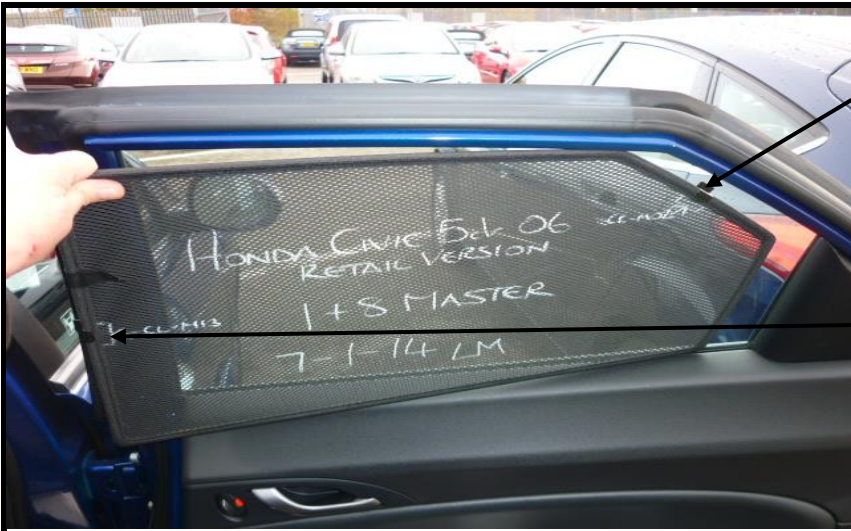 HONDA CIVIC 5dr 06
RETAIL VERSION
1 + 8 MASTER
7-1-14 LM
CL-M13